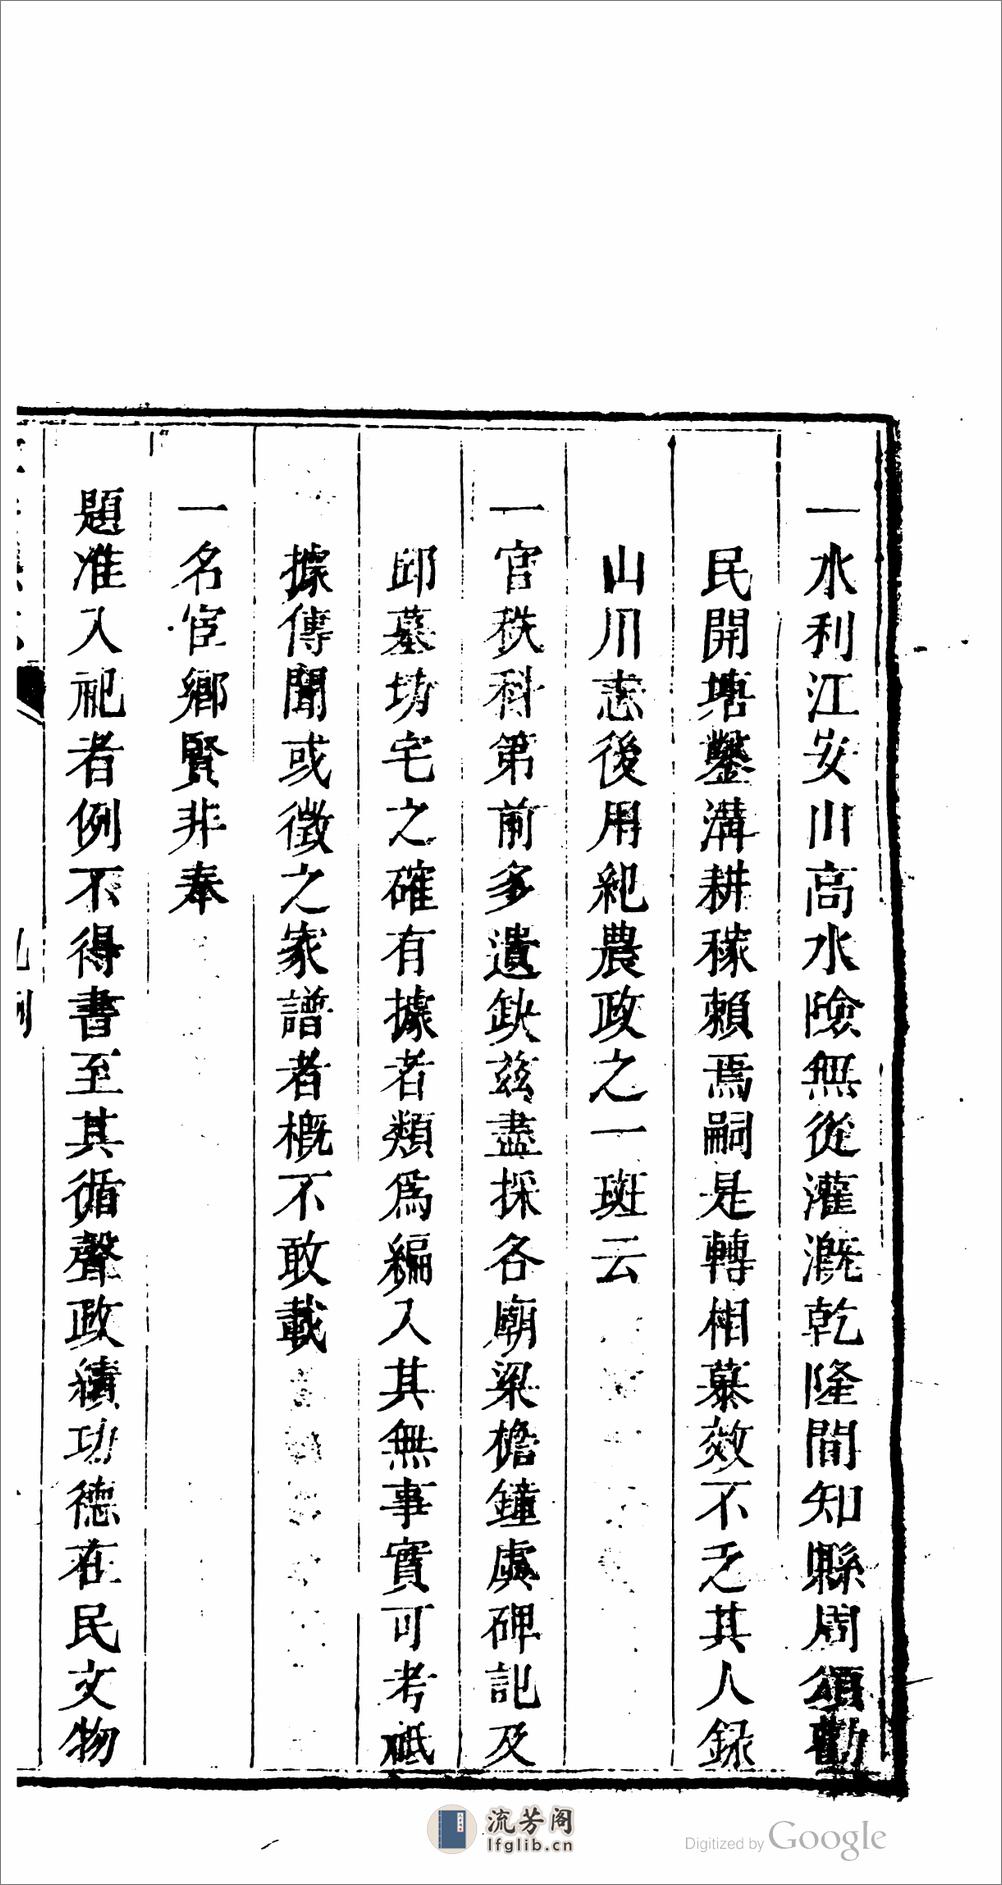 一水利江安山高水險無從灌溉乾隆間知縣周頌勸
民開塘鑿溝耕稼賴焉嗣是轉相慕效不乏其人錄
山川志後用紀農政之一斑云
一官秩科第前多遺缺茲盡採各廟梁檐鐘處碑記及
邱墓坊宅之確有據者類爲編入其無事實可考祗
據傳聞或徵之家譜者概不敢載
一名宦鄉賢非奉
題准入祀者例不得書至其循聲政績功德在民文物
凡例
流芳阁
lfglib.cn
Digitized by Google